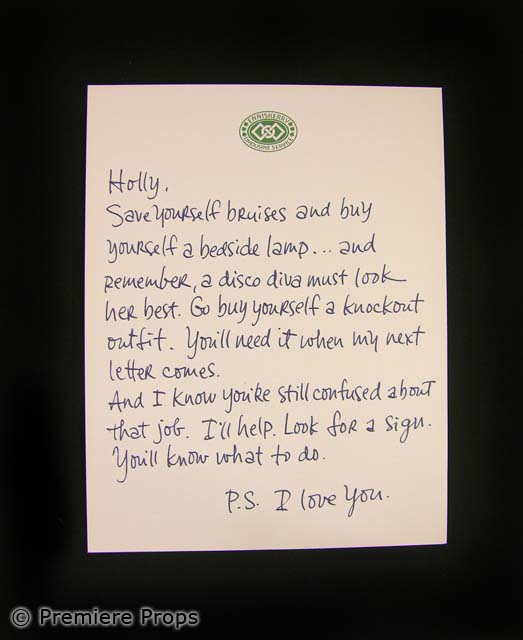 ENNISKERRY
LIMOUSINE SERVICE
Holly.
Save yourself bruises and buy
yourself a bedside lamp... and
remember, a disco diva must look
her best. Go buy yourself a knockout
outfit. You'll need it when my next
letter comes.
And I know you're still confused about
that job. I'll help. Look for a sign.
You'll know what to do.
P.S. I love You.
© Premiere Props